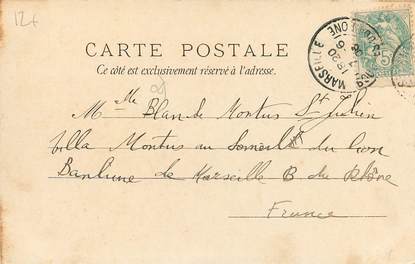 12+
CARTE POSTALE
Ce côté est exclusivement réservé à l'adresse.
MARSEILLE
18 20
RHONE
Mme Blan de Montus St Julien
Villa Montus au Sommité du Lion
Banlieue de Marseille B du Rhône
France